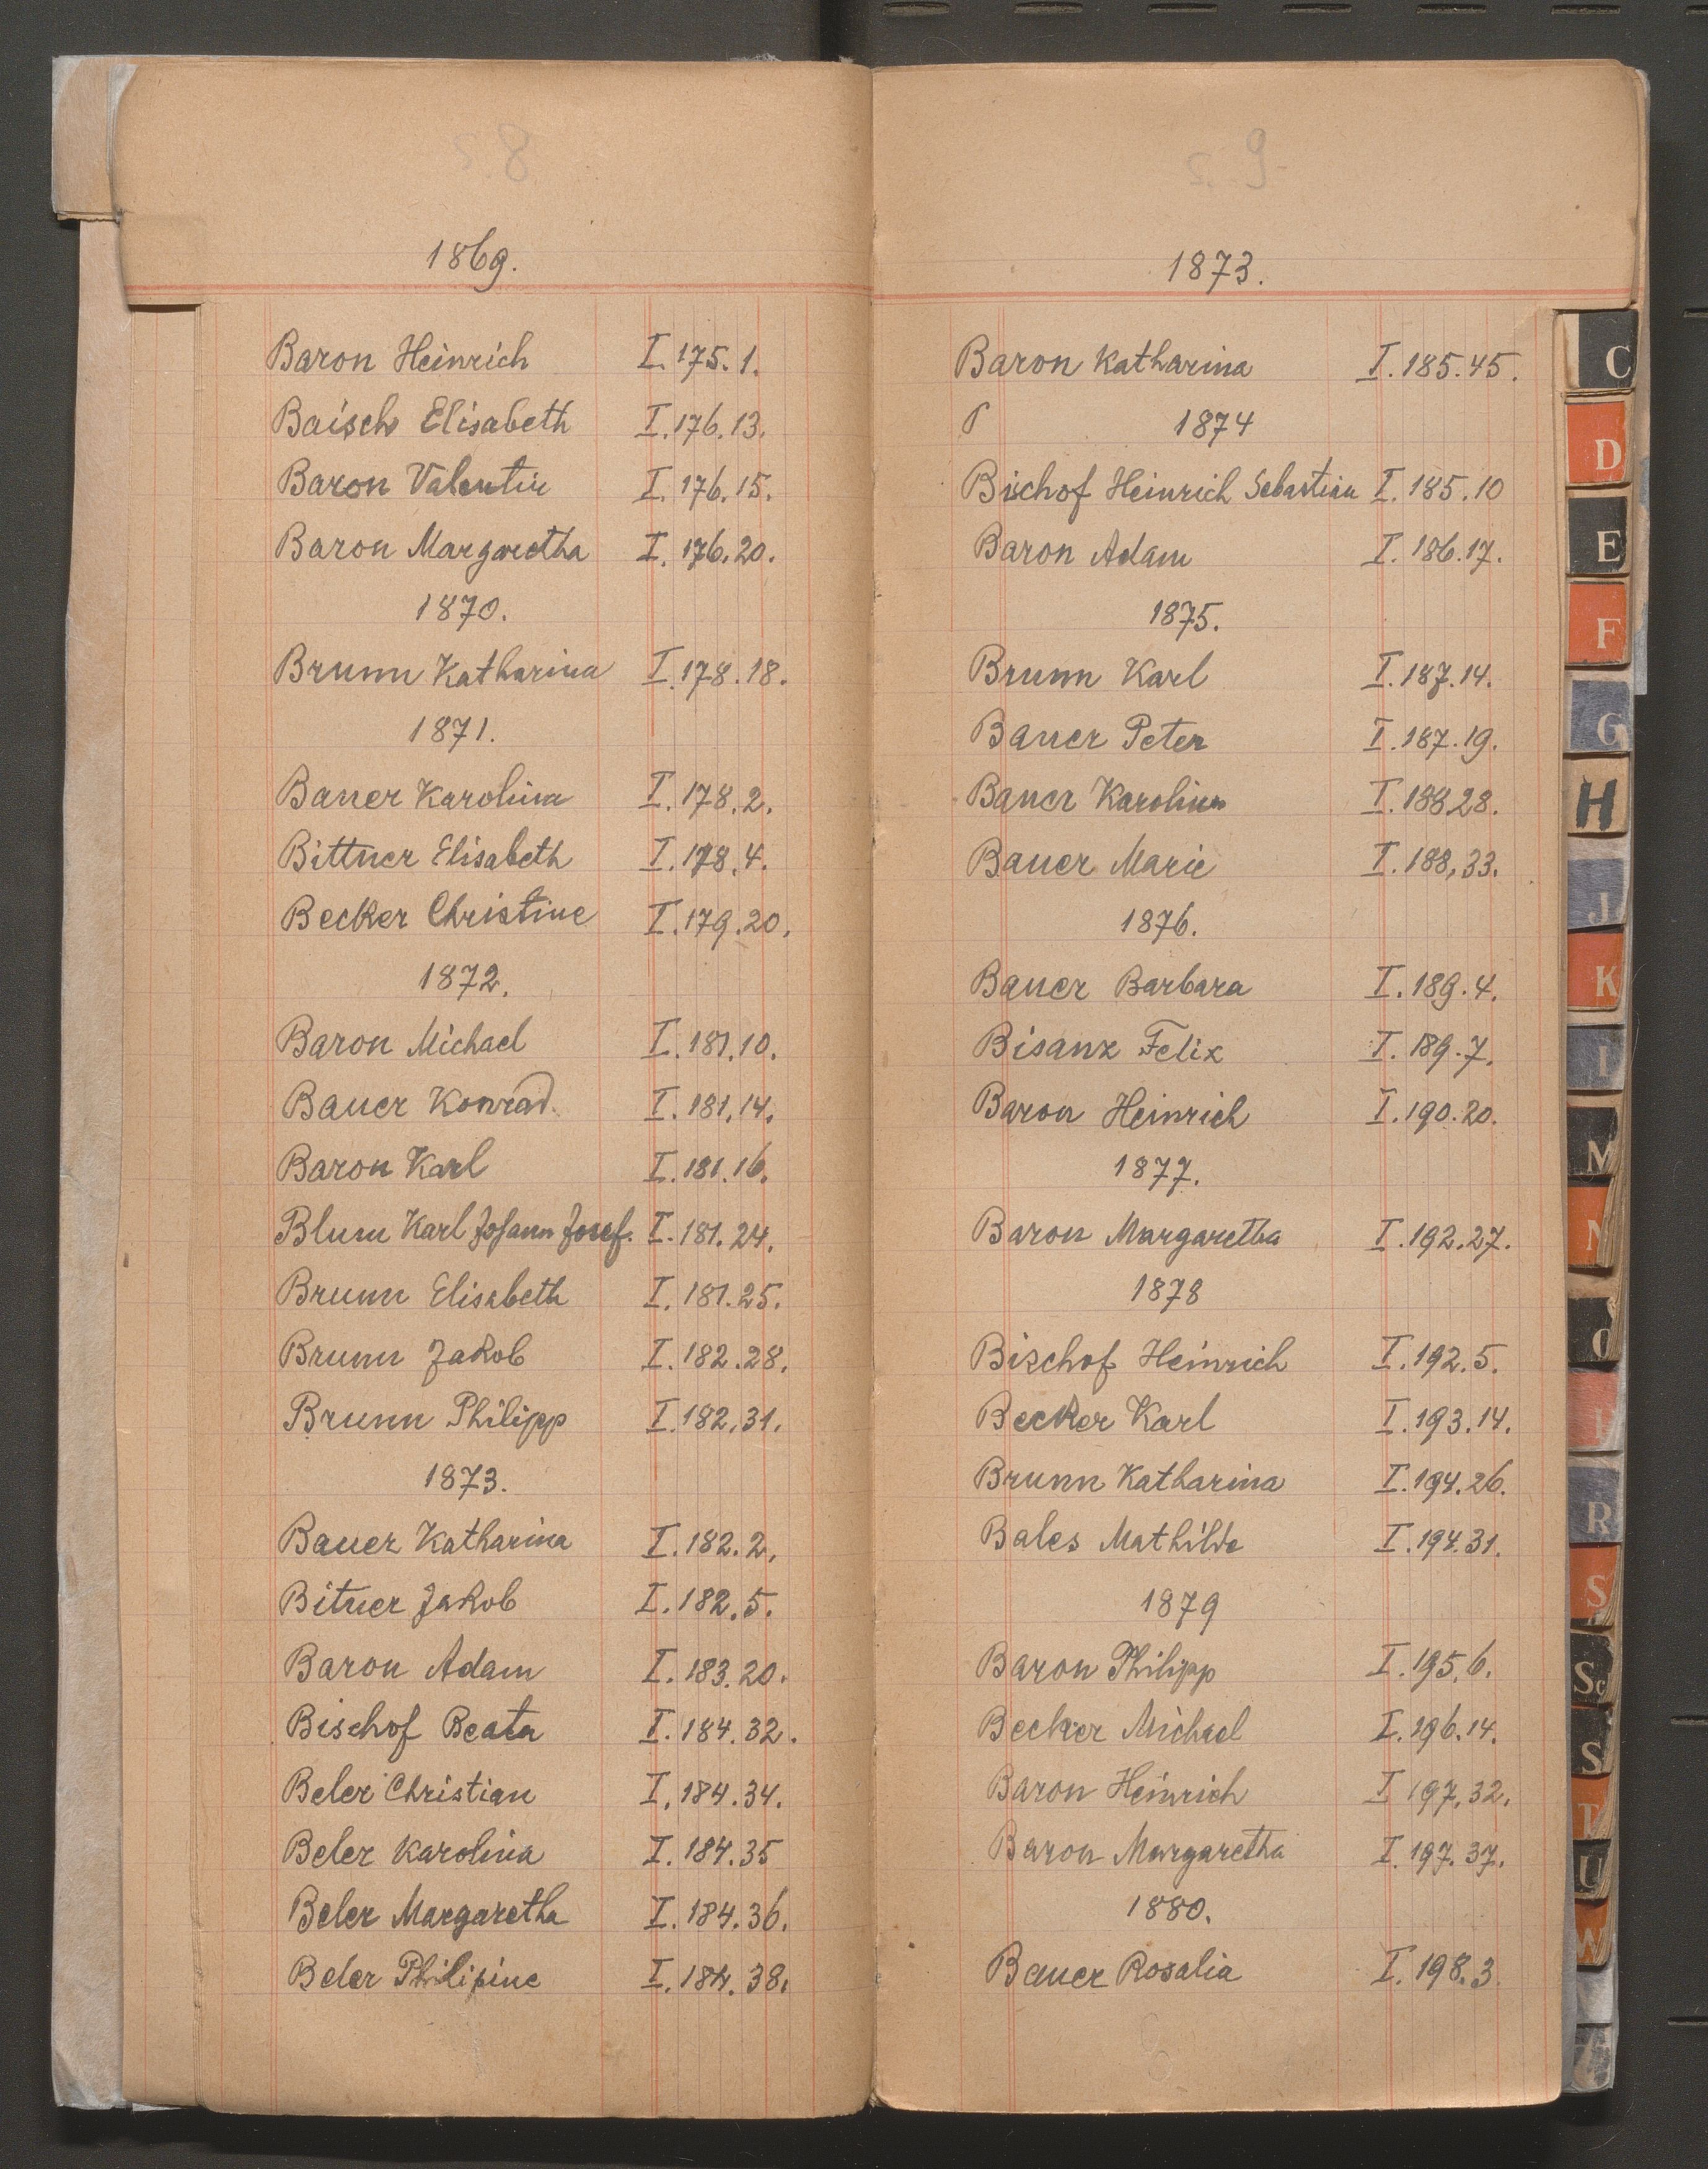 1869.
Baron Heinrich I. 175. 1.
Baisch Elisabeth I. 176. 13.
Baron Valentin I. 176. 15.
Baron Margaretha I. 176. 20.
1870.
Brunn Katharina I. 178. 18.
1871.
Bauer Karolina I. 178. 2.
Bittner Elisabeth I. 178. 4.
Becker Christine I. 179. 20.
1872.
Baron Michael I. 181. 10.
Bauer Konrad. I. 181. 14.
Baron Karl I. 181. 16.
Blum Karl Johann Josef. I. 181. 24.
Brunn Elisabeth I. 181. 25.
Brunn Jakob I. 182. 28.
Brunn Philipp I. 182. 31.
1873.
Bauer Katharina I. 182. 2.
Bitner Jakob I. 182. 5.
Baron Adam I. 183. 20.
Bischof Beata I. 184. 32.
Beler Christian I. 184. 34.
Beler Karolina I. 184. 35
Beler Margaretha I. 184. 36.
Beler Philipine I. 184. 38.
1873.
Baron Katharina I. 185. 45.
1874
Bischof Heinrich Sebastian I. 185. 10
Baron Adam I. 186. 17.
1875.
Brunn Karl I. 187. 14.
Bauer Peter I. 187. 19.
Bauer Karolina I. 188 28.
Bauer Marie I. 188, 33.
1876.
Bauer Barbara I. 189. 4.
Bisanz Felix I. 189. 7.
Baron Heinrich I. 190. 20.
1877.
Baron Margaretha I. 192. 27.
1878
Bischof Heinrich I. 192. 5.
Becker Karl I. 193. 14.
Brunn Katharina I. 194. 26.
Bales Mathilde I. 194. 31.
1879
Baron Philipp I. 195. 6.
Becker Michael I. 196. 14.
Baron Heinrich I 197. 32.
Baron Margaretha I. 197. 37.
1880.
Bauer Rosalia I. 198. 3.
C
D
E
F
G
H
J
K
M
N
O
R
S
Sc
S
T
U
W